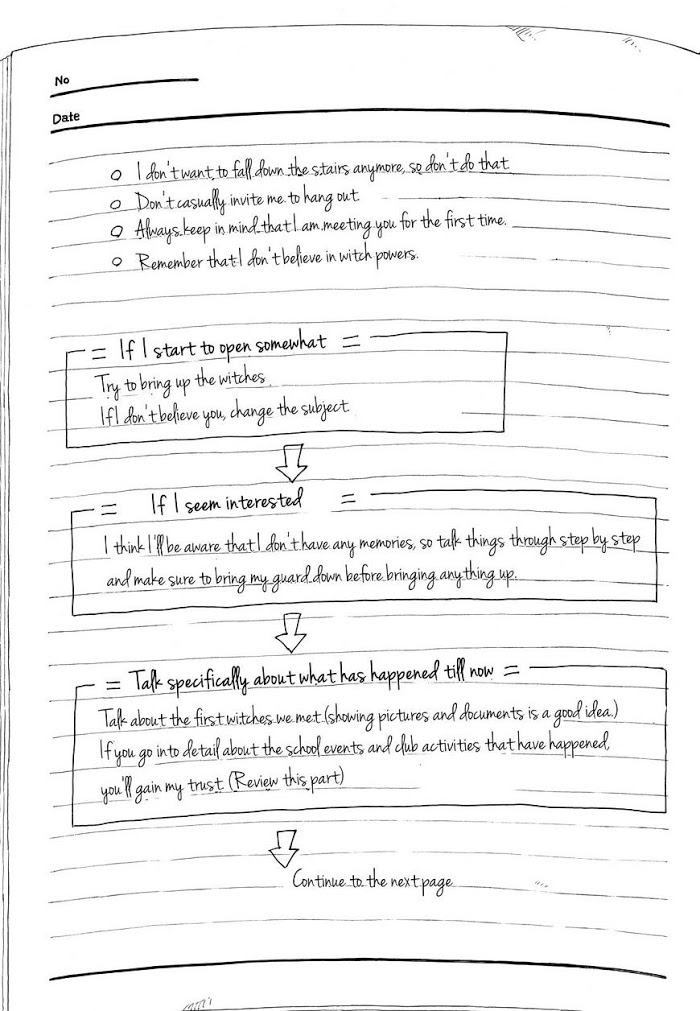 No
Date
o I don't want to fall down the stairs anymore, so don't do that
o Don't casually invite me to hang out.
o Always keep in mind that I am meeting you for the first time.
o Remember that I don't believe in witch powers.
= If I start to open somewhat =
Try to bring up the witches.
If I don't believe you, change the subject.
= If I seem interested =
I think I'll be aware that I don't have any memories, so talk things through step by step
and make sure to bring my guard down before bringing anything up.
= Talk specifically about what has happened till now =
Talk about the first witches we met (showing pictures and documents is a good idea.)
If you go into detail about the school events and club activities that have happened,
you'll gain my trust (Review this part)
Continue to the next page